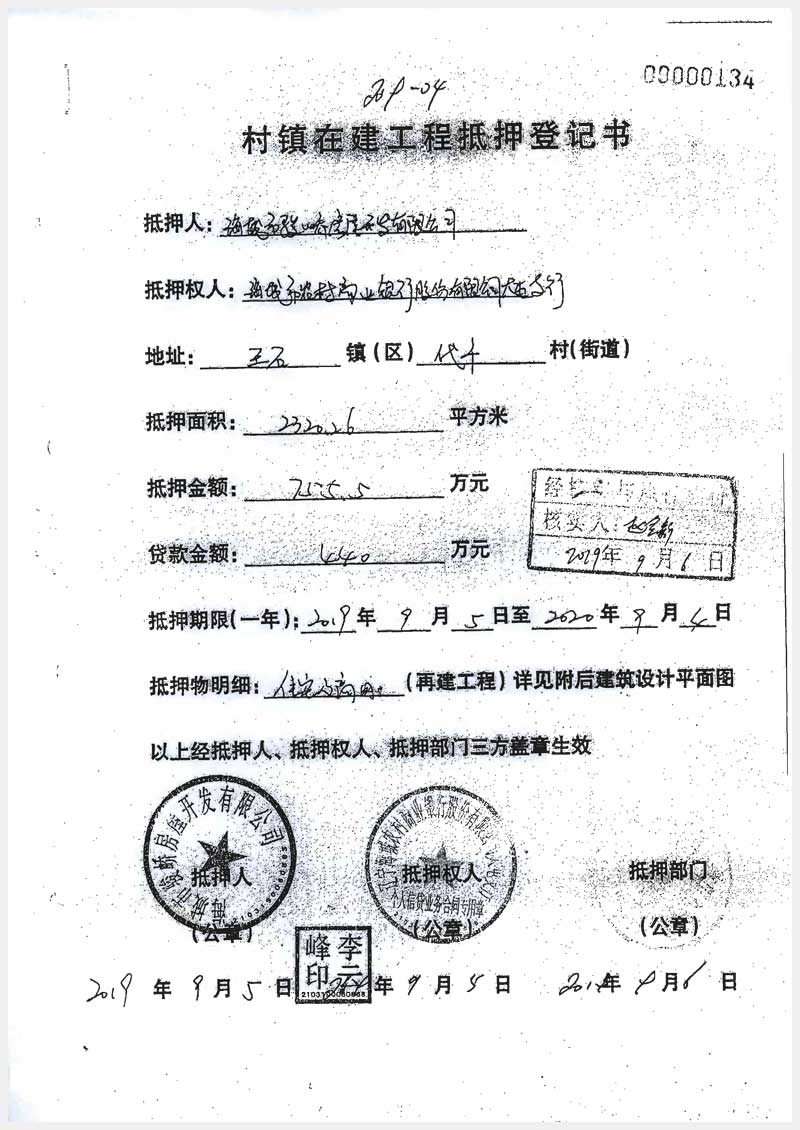 00000134
村镇在建工程抵押登记书
抵押人：海城市骏峤房屋开发有限公司
抵押权人：海城市农村商业银行股份有限公司
地址： 王石 镇（区） 代千 村（街道）
抵押面积： 2320.26 平方米
抵押金额： 755.5 万元
核实人：
2019年9月6日
贷款金额： 440 万元
抵押期限（一年）：2019年9月5日至2020年9月4日
抵押物明细： 住宅 （再建工程）详见附后建筑设计平面图
以上经抵押人、抵押权人、抵押部门三方盖章生效
开发有限公司
抵押人
抵押权人
抵押部门
个人信贷业务合同专用章
（公章）
（公章）
（公章）
李云峰印
2019年9月5日
年9月4日
年 月6日